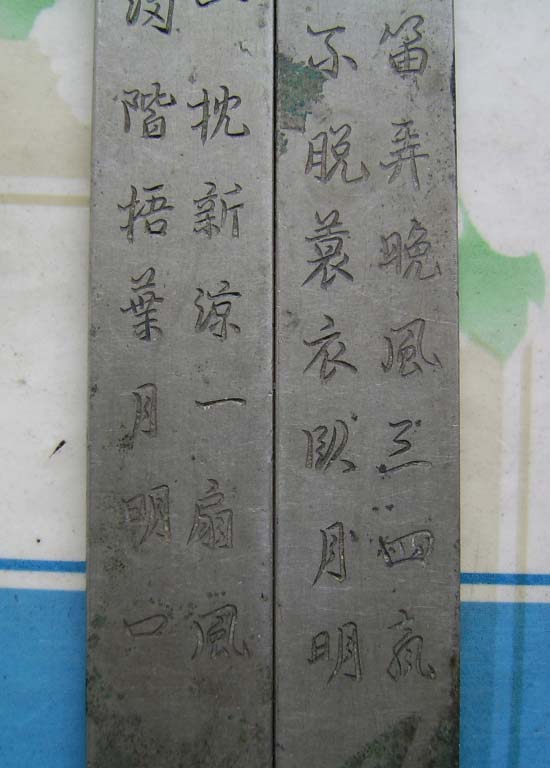 笛弄晚風三四声
不脫蓑衣臥月明
枕新涼一扇風
階梧葉月明口